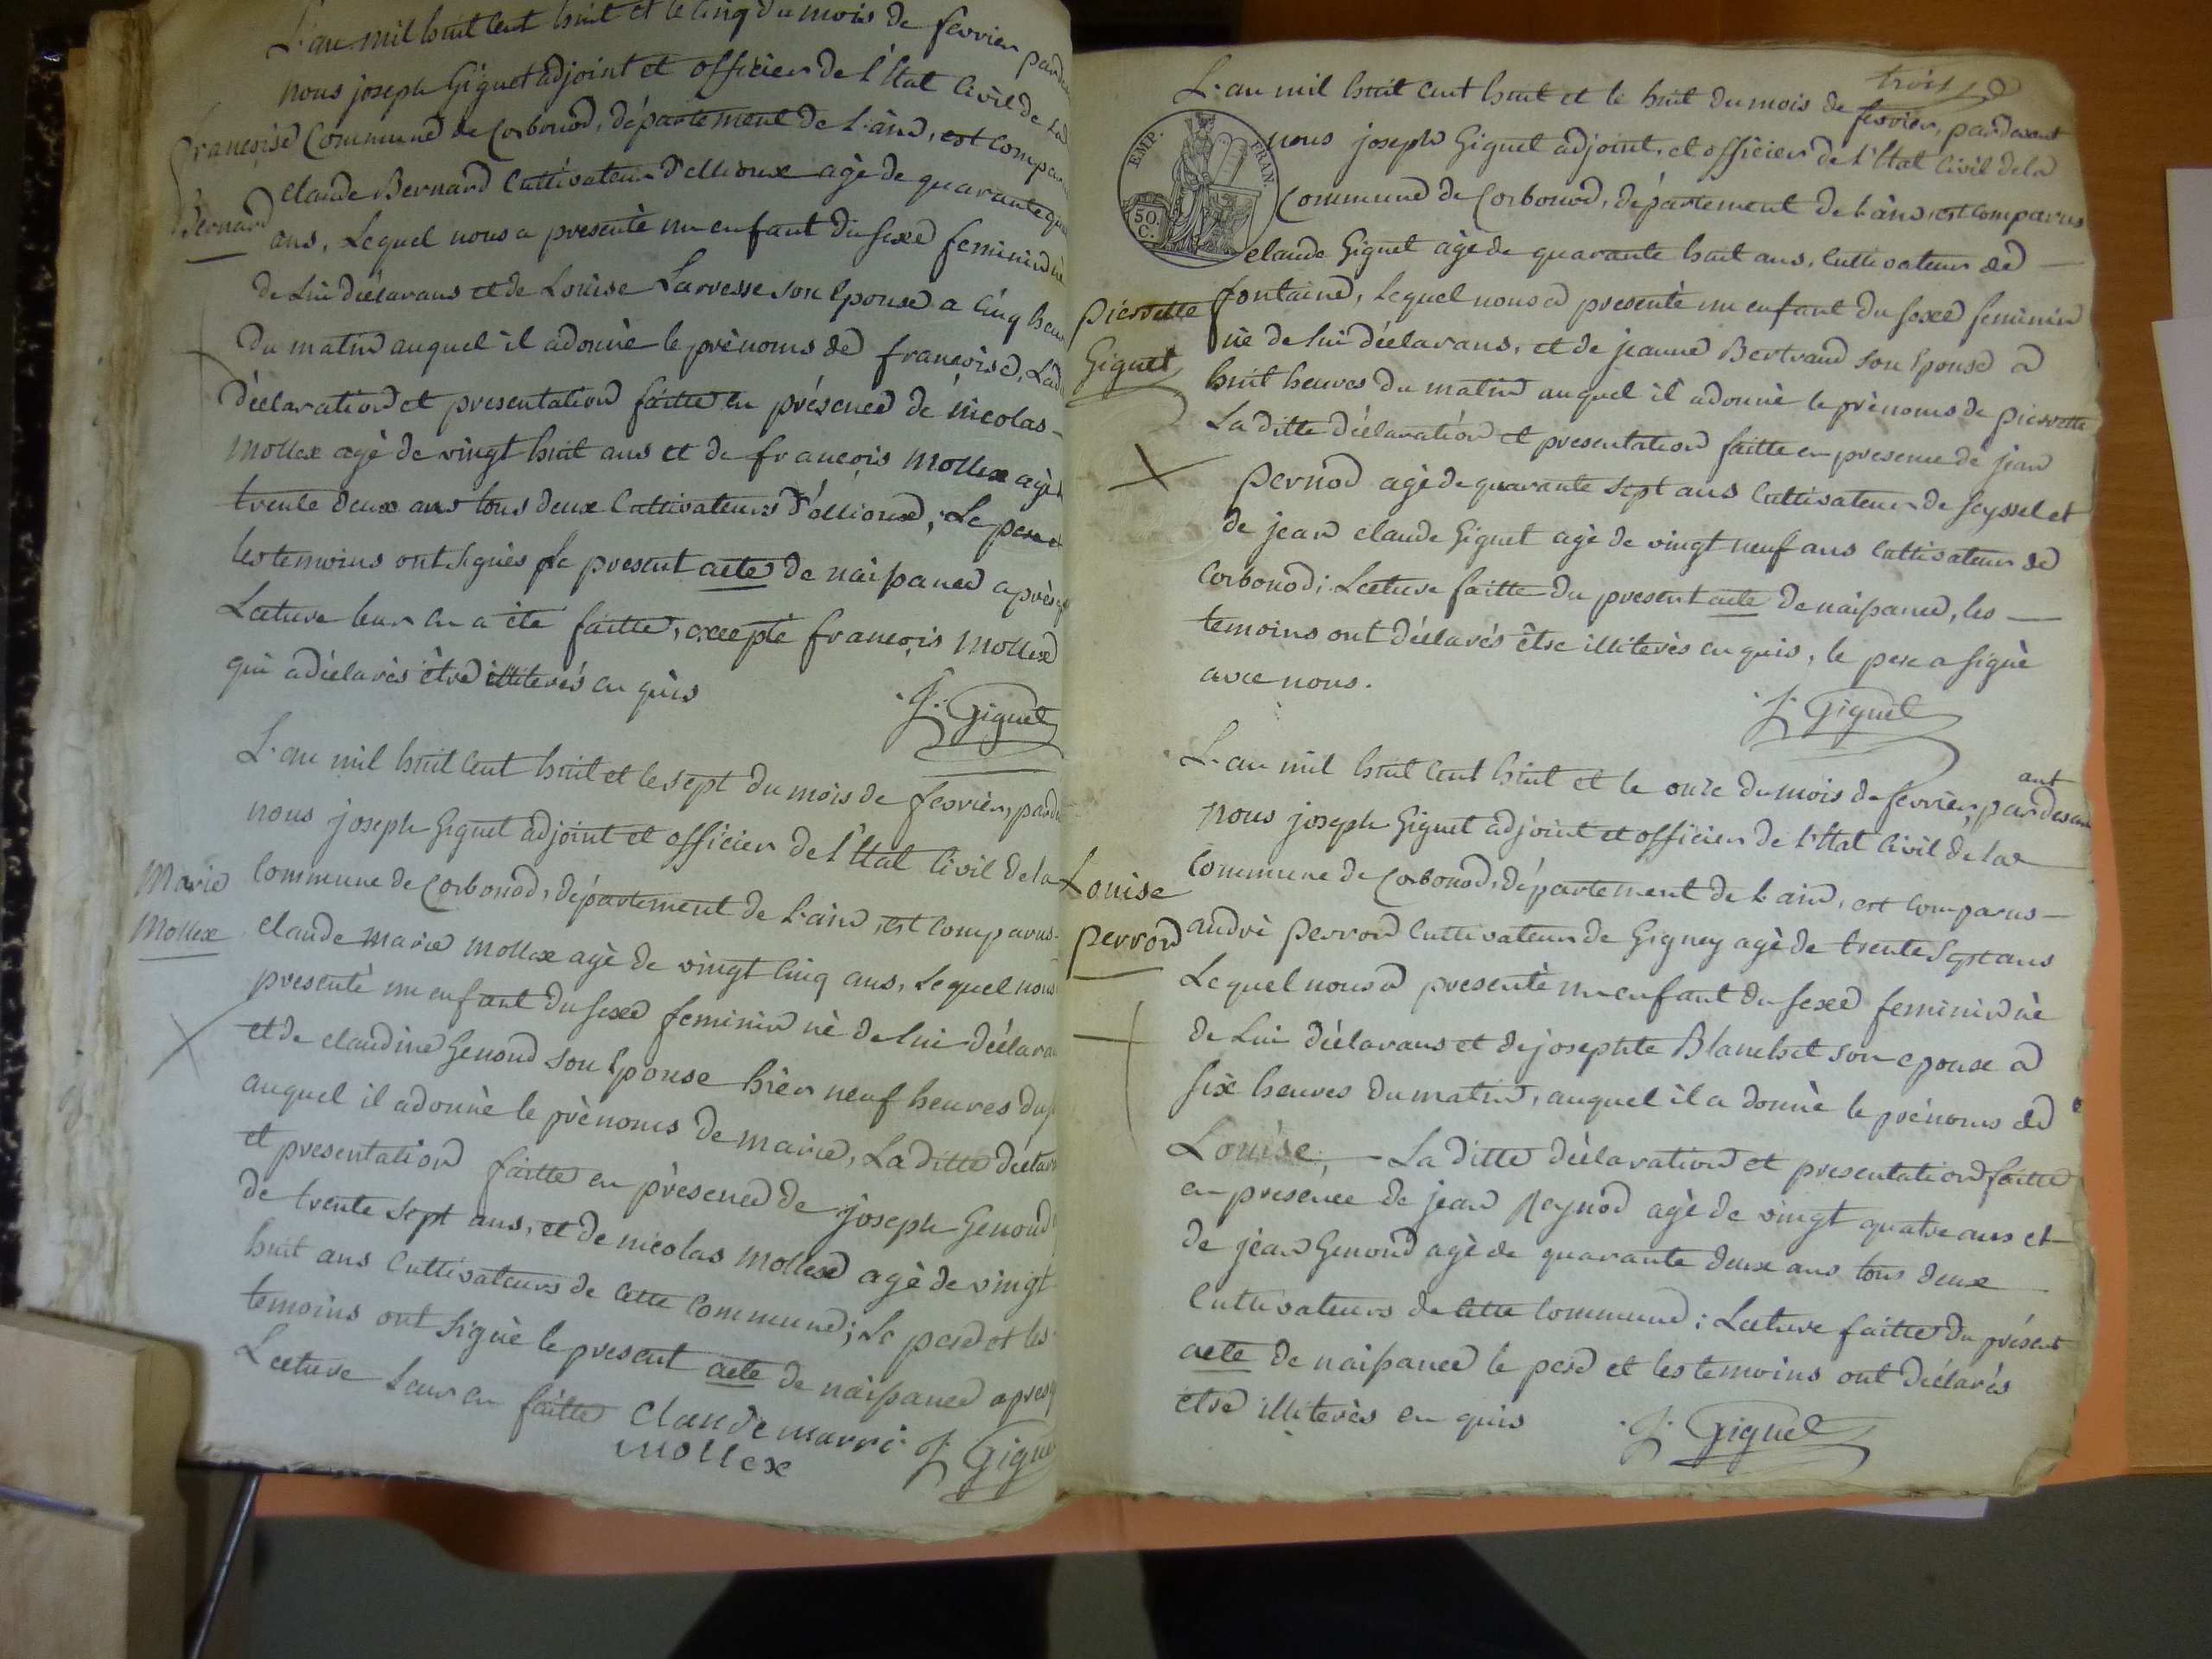 L'an mil huit cent huit et le cinq du mois de fevrier pard
nous joseph Giguet adjoint et officier de l'Etat Civil de la
françoise Commune de Corbonod, département de l'ain, est compar
Bernard claude Bernard Cultivateur d'ellioux agé de quarante
ans, Lequel nous a presenté un enfant du sexe feminin né
de lui déclarans et de Louise Larvesse son Epouse a cinq heu
du matin auquel il a donné le prénoms de françoise, La
déclaration et presentation faitte en présence de nicolas
mollex agé de vingt huit ans et de françois mollex agé
trente deux ans tous deux Cultivateurs d'ellioux; Le pere et
les temoins ont signés le present acte de naissance après
Lecture leur en a été faitte, excepté françois mollex
qui a déclarés être illiterés en quis
J. Giguet
L'an mil huit cent huit et le sept du mois de fevrier, pard
nous joseph Giguet adjoint et officier de l'Etat Civil de la
Marie Commune de Corbonod, département de l'ain, est comparus
Mollex claude marie mollex agé de vingt cinq ans, Lequel nous
presenté un enfant du sexe feminin né de lui déclara
et de claudine Genoud son Epouse hier neuf heures du
auquel il a donné le prénoms de marie, La ditte déclara
et presentation faitte en présence de joseph Genoud
de trente sept ans, et de nicolas mollex agé de vingt
huit ans Cultivateurs de cette Commune; Le pere et les
temoins ont signé le present acte de naissance apres
Lecture leur en faitte claude marri J. Gigue
mollex
trois
L'an mil huit cent huit et le huit du mois de fevrier, pardevant
EMP. FRAN. 50 C.
nous joseph Giguet adjoint, et officier de l'Etat Civil de la
Commune de Corbonod, département de l'ain, est comparus
claude Giguet agé de quarante huit ans, Cultivateur de
Pierrette fontaine, Lequel nous a presenté un enfant du sexe feminin
Giguet né de lui déclarans, et de jeanne Bertrand son Epouse a
huit heures du matin auquel il a donné le prénoms de pierrette
La ditte déclaration et presentation faitte en presence de jean
pernod agé de quarante sept ans Cultivateur de Seyssel et
de jean claude Giguet agé de vingt neuf ans Cultivateur de
Corbonod; Lecture faitte du present acte de naissance, les
temoins ont déclarés être illiterés en quis, le pere a signé
avec nous.
J. Giguet
L'an mil huit cent huit et le onze du mois de fevrier, pardevant
nous joseph Giguet adjoint et officier de l'Etat Civil de la
Louise Commune de Corbonod, département de l'ain, est comparus
perron andré perron Cultivateur de Gigney agé de trente sept ans
Lequel nous a presenté un enfant du sexe feminin né
de Lui déclarans et de josephte Blanchet son epouse a
six heures du matin, auquel il a donné le prénoms de
Louise; La ditte déclaration et presentation faitte
en presence de jean Reynod agé de vingt quatre ans et
de jean Genoud agé de quarante deux ans tous deux
Cultivateurs de cette Commune; Lecture faitte du présent
acte de naissance le pere et les temoins ont déclarés
etre illiterés en quis
J. Giguet